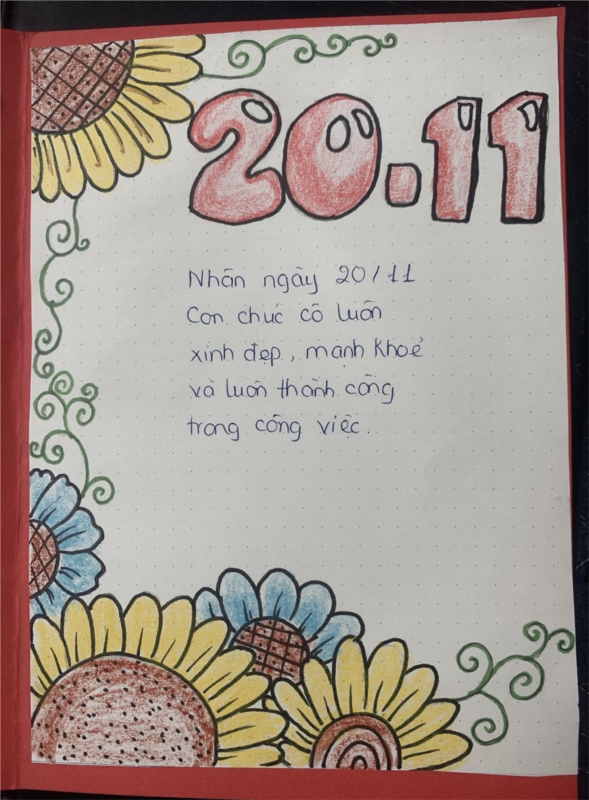 20.11
Nhân ngày 20/11
Con chúc cô luôn
xinh đẹp, mạnh khoẻ
và luôn thành công
trong công việc.